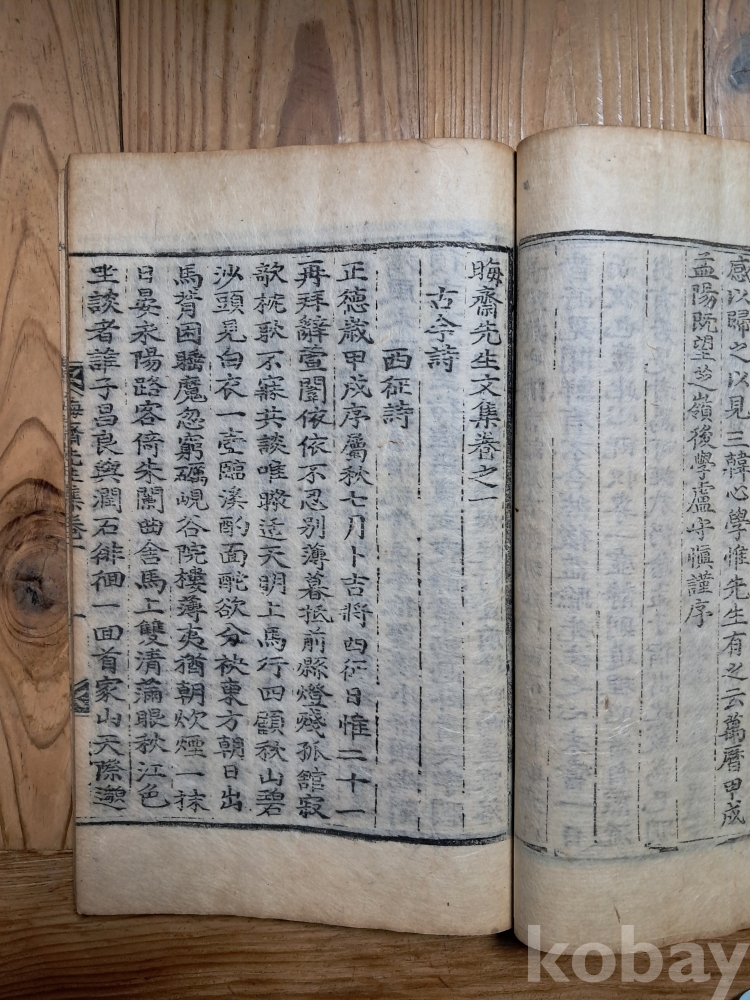 感以歸之以見三韓心學惟先生有之云萬曆甲戌
孟陽既望芝嶺後學盧守愼謹序
晦齋先生文集卷之一
古今詩
西征詩
正德歲甲戌序屬秋七月卜吉將西征日惟二十一
再拜辭萱闈依依不忍別薄暮抵前縣燈殘孤館寂
欹枕耿不寐共談唯 天明上馬行四顧秋山碧
沙頭見白衣一壺臨溪酌面酡欲分袂東方朝日出
馬背困睡魔忽窮 峴谷院樓薄夷猶朝炊煙一抹
日晏永陽路客倚朱闌曲舍馬上雙清滿眼秋江色
坐談者誰子昌良與潤石徘徊一回首家山天際邈
晦齋先生集卷一
一
kobay